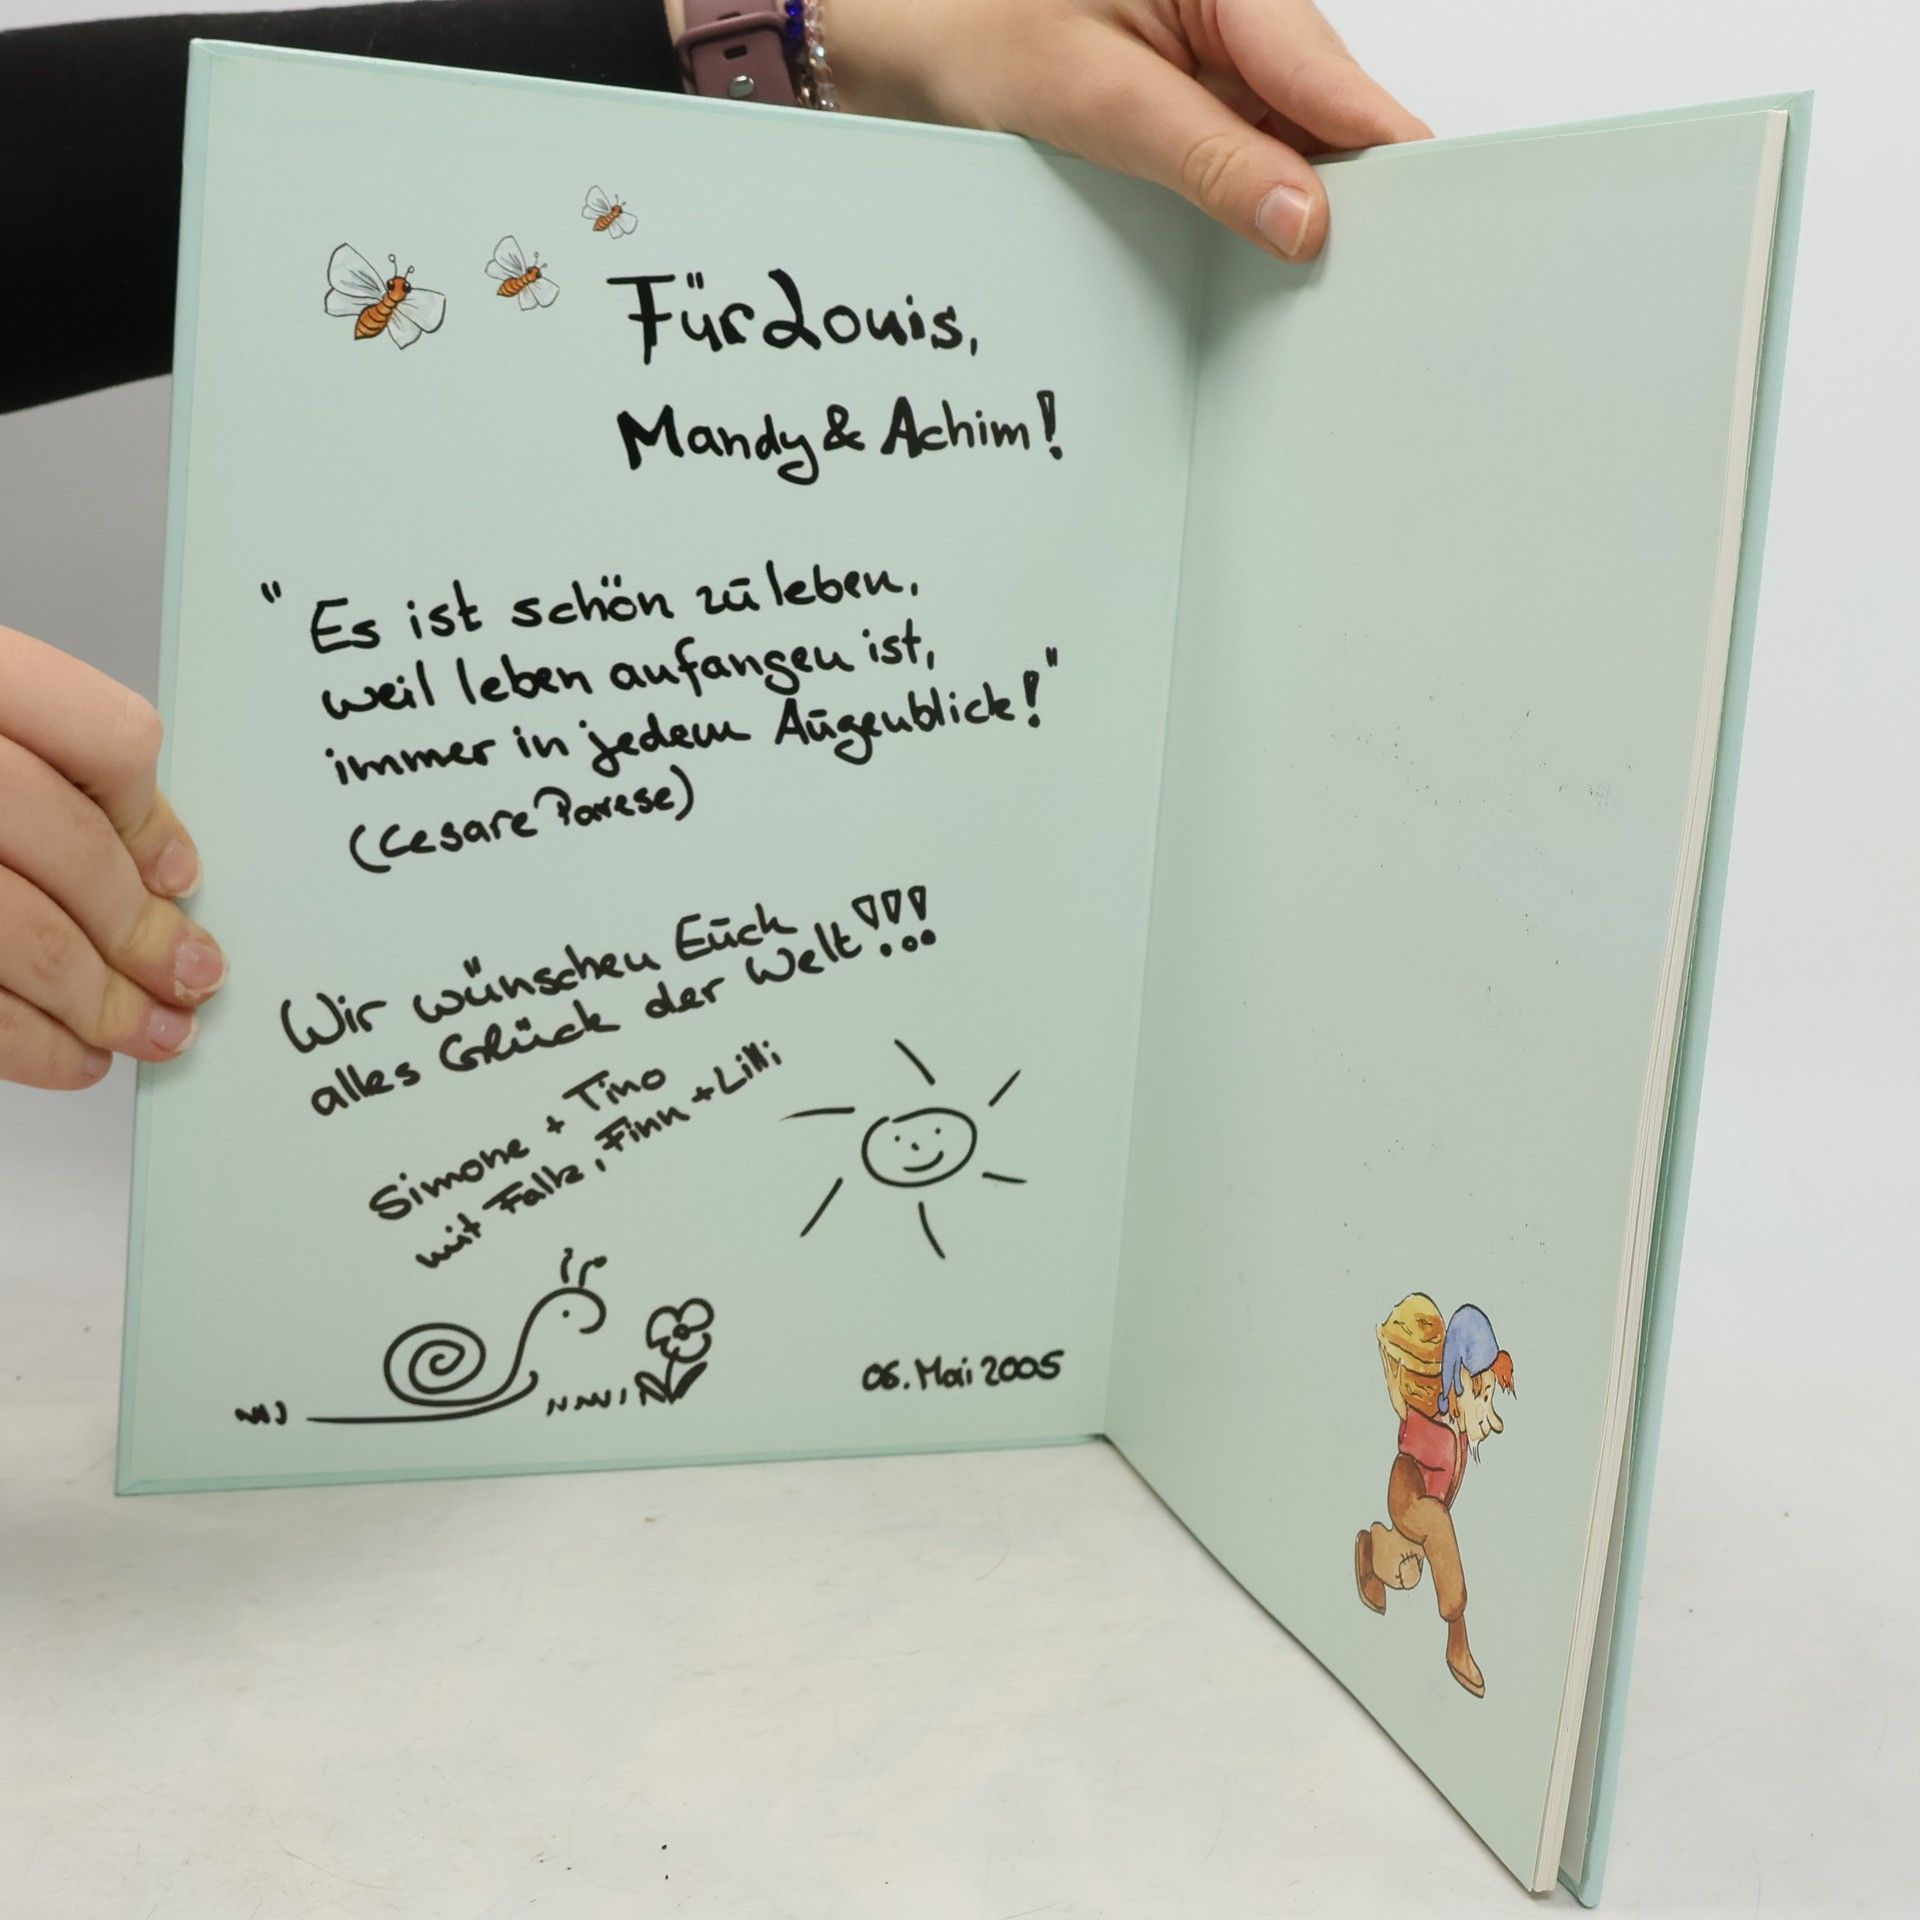 Für Louis,
Mandy & Achim!
"Es ist schön zu leben,
weil leben anfangen ist,
immer in jedem Augenblick!"
(Cesare Pavese)
Wir wünschen Euch
alles Glück der Welt!!!
Simone + Tino
mit Falk, Finn + Lilli
06. Mai 2005